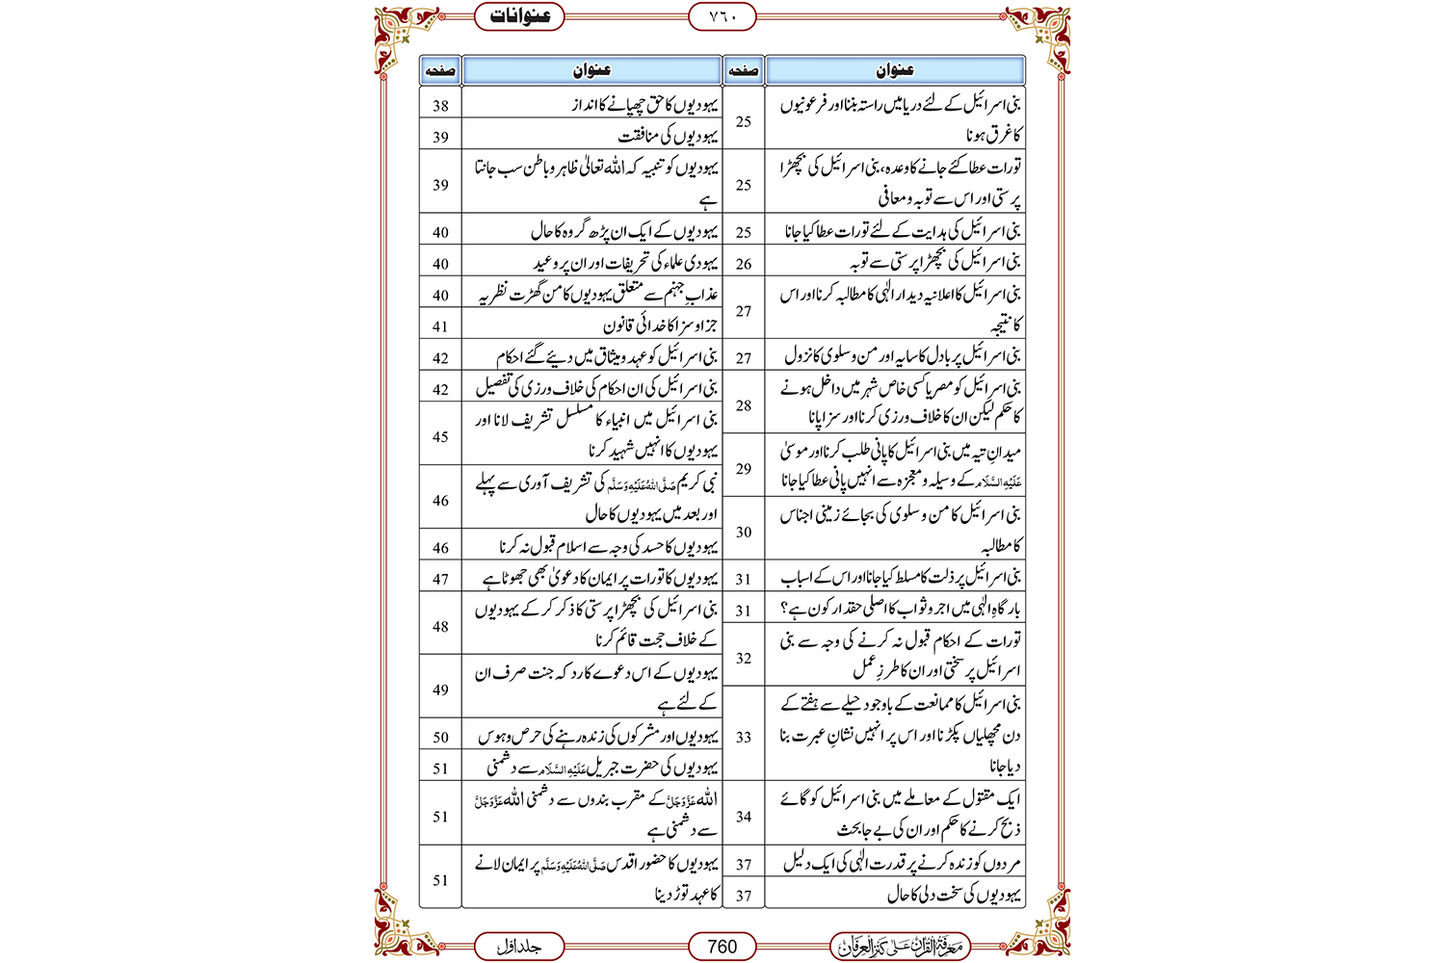 عنوانات
۷۶۰
عنوان
صفحہ
عنوان
صفحہ
بنی اسرائیل کے لئے دریا میں راستہ بننا اور فرعونیوں
کا غرق ہونا
25
تورات عطا کئے جانے کا وعدہ، بنی اسرائیل کی بچھڑا
پرستی اور اس سے توبہ و معافی
25
بنی اسرائیل کی ہدایت کے لئے تورات عطا کیا جانا
25
بنی اسرائیل کی بچھڑا پرستی سے توبہ
26
بنی اسرائیل کا اعلانیہ دیدار الٰہی کا مطالبہ کرنا اور اس
کا نتیجہ
27
بنی اسرائیل پر بادل کا سایہ اور من و سلوی کا نزول
27
بنی اسرائیل کو مصر یا کسی خاص شہر میں داخل ہونے
کا حکم لیکن ان کا خلاف ورزی کرنا اور سزا پانا
28
میدانِ تیہ میں بنی اسرائیل کا پانی طلب کرنا اور موسیٰ
عَلَیْہِ السَّلَام کے وسیلہ و معجزہ سے انہیں پانی عطا کیا جانا
29
بنی اسرائیل کا من و سلوی کی بجائے زمینی اجناس
کا مطالبہ
30
بنی اسرائیل پر ذلت کا مسلط کیا جانا اور اس کے اسباب
31
بارگاہِ الٰہی میں اجر و ثواب کا اصلی حقدار کون ہے؟
31
تورات کے احکام قبول نہ کرنے کی وجہ سے بنی
اسرائیل پر سختی اور ان کا طرزِ عمل
32
بنی اسرائیل کا ممانعت کے باوجود حیلے سے ہفتے کے
دن مچھلیاں پکڑنا اور اس پر انہیں نشانِ عبرت بنا
دیا جانا
33
ایک مقتول کے معاملے میں بنی اسرائیل کو گائے
ذبح کرنے کا حکم اور ان کی بے جا بحث
34
مردوں کو زندہ کرنے پر قدرت الٰہی کی ایک دلیل
37
یہودیوں کی سخت دلی کا حال
37
یہودیوں کا حق چھپانے کا انداز
38
یہودیوں کی منافقت
39
یہودیوں کو تنبیہ کہ اللہ تعالیٰ ظاہر و باطن سب جانتا
ہے
39
یہودیوں کے ایک ان پڑھ گروہ کا حال
40
یہودی علماء کی تحریفات اور ان پر وعید
40
عذابِ جہنم سے متعلق یہودیوں کا من گھڑت نظریہ
40
جزا و سزا کا خدائی قانون
41
بنی اسرائیل کو عہد و میثاق میں دیئے گئے احکام
42
بنی اسرائیل کی ان احکام کی خلاف ورزی کی تفصیل
42
بنی اسرائیل میں انبیاء کا مسلسل تشریف لانا اور
یہودیوں کا انہیں شہید کرنا
45
نبی کریم صَلَّی اللہُ عَلَیْہِ وَسَلَّم کی تشریف آوری سے پہلے
اور بعد میں یہودیوں کا حال
46
یہودیوں کا حسد کی وجہ سے اسلام قبول نہ کرنا
46
یہودیوں کا تورات پر ایمان کا دعویٰ بھی جھوٹا ہے
47
بنی اسرائیل کی بچھڑا پرستی کا ذکر کر کے یہودیوں
کے خلاف حجت قائم کرنا
48
یہودیوں کے اس دعوے کا رد کہ جنت صرف ان
کے لئے ہے
49
یہودیوں اور مشرکوں کی زندہ رہنے کی حرص و ہوس
50
یہودیوں کی حضرت جبریل عَلَیْہِ السَّلَام سے دشمنی
51
اللہ عَزَّوَجَلَّ کے مقرب بندوں سے دشمنی اللہ عَزَّوَجَلَّ
سے دشمنی ہے
51
یہودیوں کا حضور اقدس صَلَّی اللہُ عَلَیْہِ وَسَلَّم پر ایمان لانے
کا عہد توڑ دینا
51
معرفۃ القرآن علی کنز العرفان
760
جلد اول